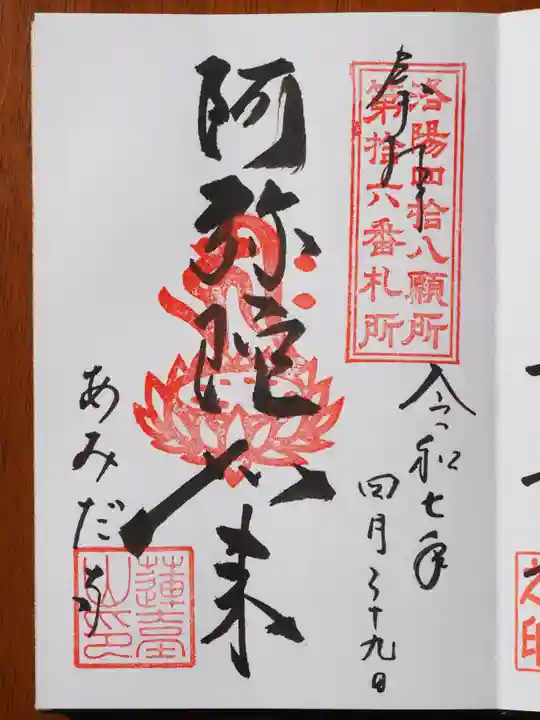 奉拝
洛陽四拾八願所
第拾六番札所
令和七年
四月二十九日
阿弥陀如来
あみだ寺
蓮臺
山印
之印